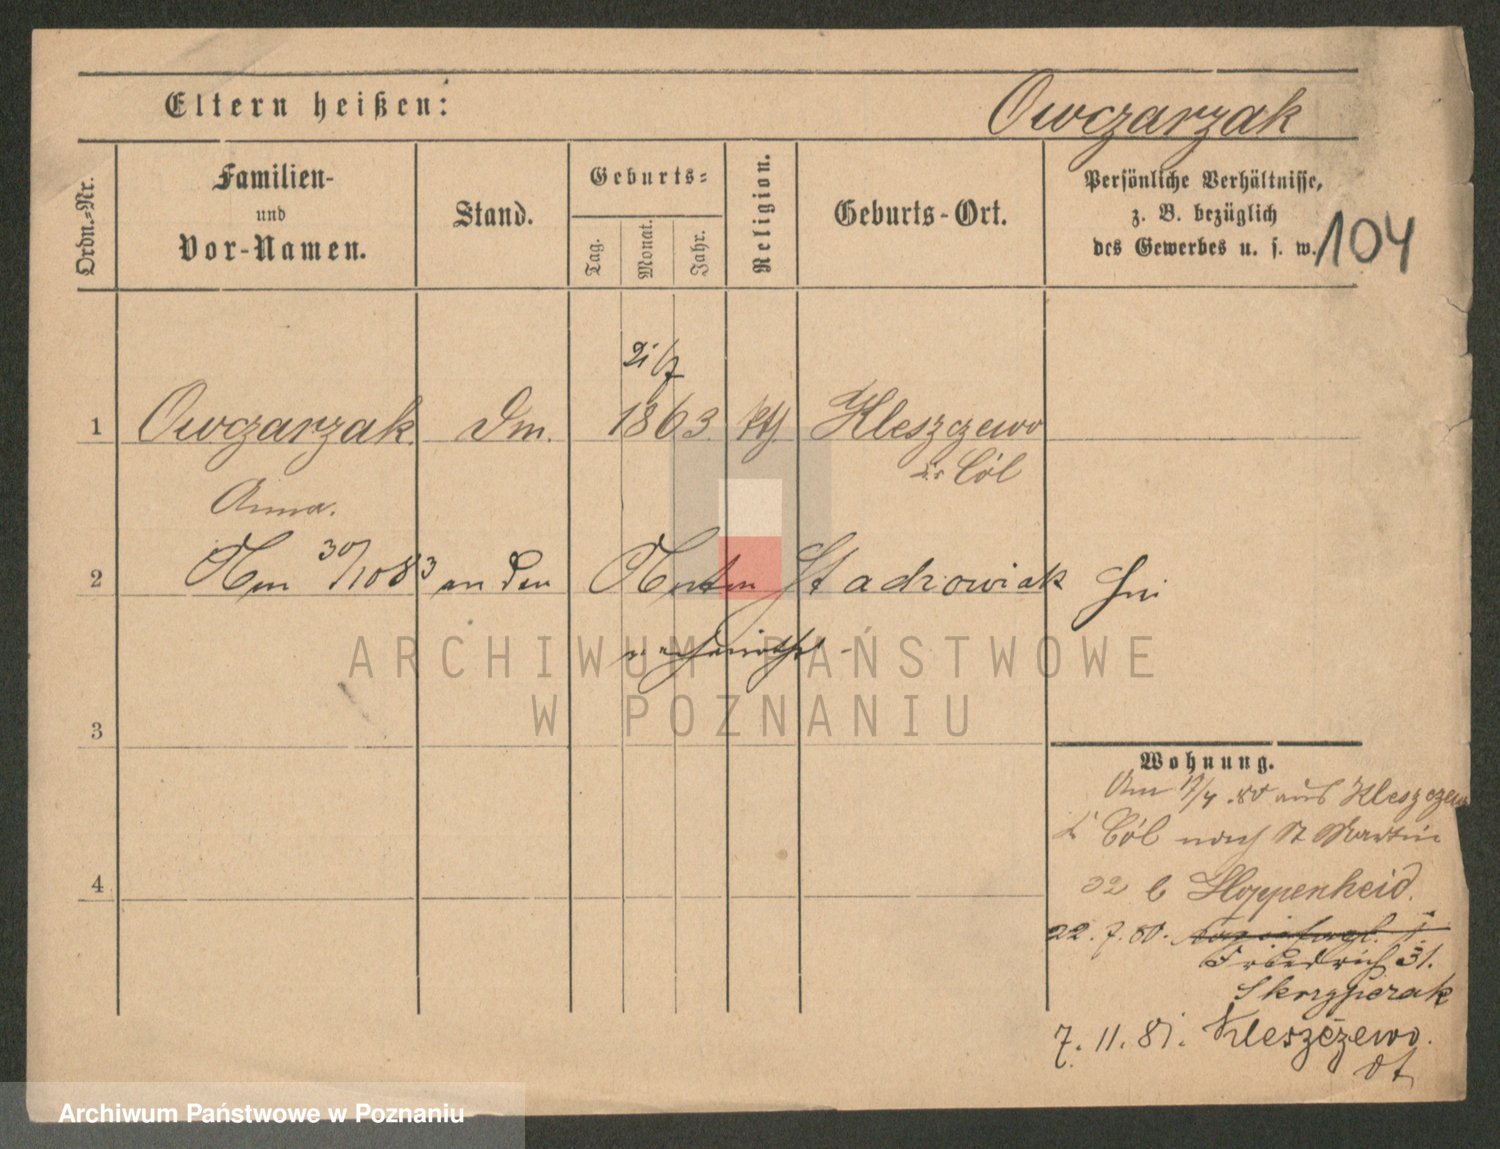 Eltern heißen:
Owczarzak
Ordn.-Nr.
Familien-
und
Vor-Namen.
Stand.
Geburts-
Tag.
Monat.
Jahr.
Religion.
Geburts-Ort.
Persönliche Verhältnisse,
z. B. bezüglich
des Gewerbes u. s. w.
104
21/7
1 Owczarzak Dm. 1863 kth Kleszczewo
Anna.
2 Am 30/10 83 an den Stachowiak
ARCHIWUM PAŃSTWOWE
W POZNANIU
3
Wohnung.
Am 17/4 80 aus Kleszczewo
nach St Martin
4
32 b Hoppenheid.
22.7.80.
Friedrich 31.
Skrzypczak
7.11.81. Kleszczewo.
Archiwum Państwowe w Poznaniu